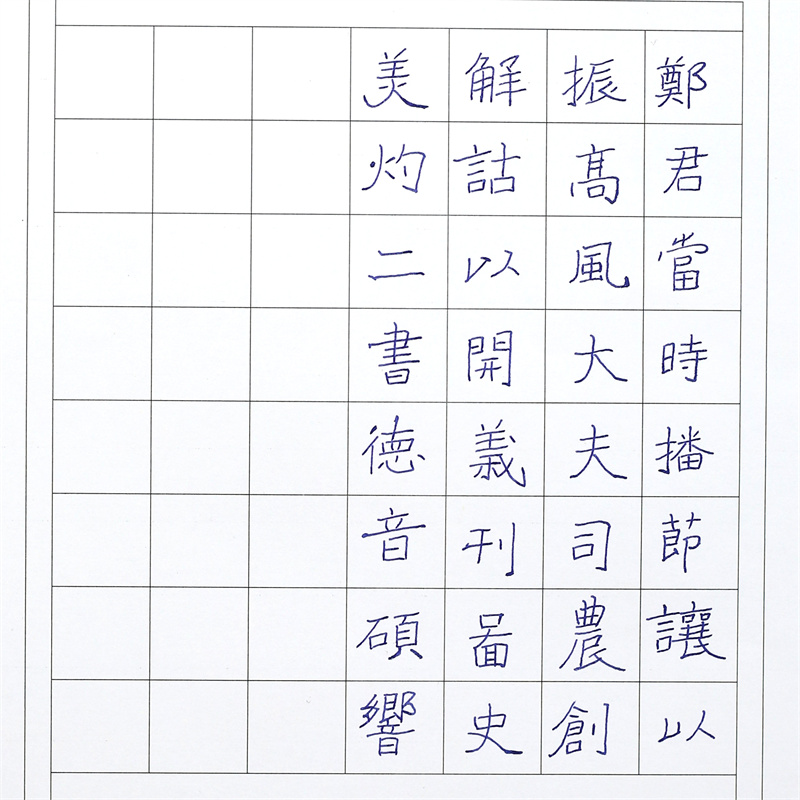 鄭君當時播節讓以
振髙風大夫司農創
解詁以開義刊啚史
美灼二書德音碩響